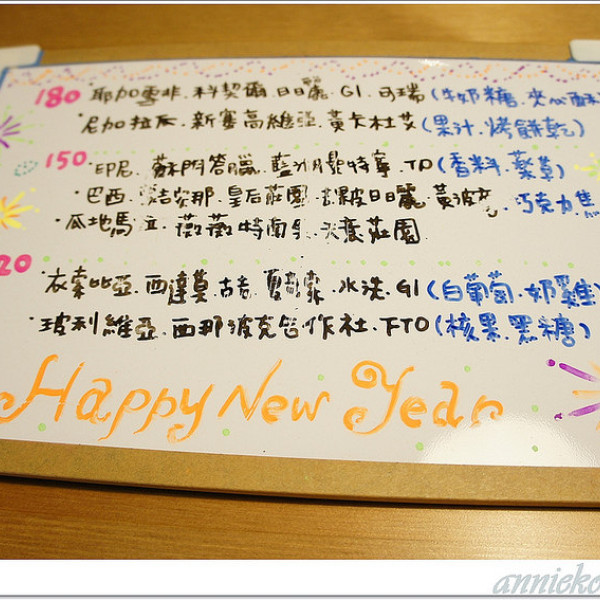 180 耶加雪菲.科契爾.日日曬.G1.可瑞(牛奶糖.夾心酥
·尼加拉瓜.新賽高維亞.黃卡杜艾(果汁.烤餅乾)
150 ·印尼.蘇門答臘.藍湖 特寧.TD(香料.藥草)
·巴西. 吉安那.皇后莊園. 日曬.黃波 .巧克力焦
·瓜地馬 .薇薇特南果. 莊園
20 ·衣索比亞.西達莫.古吉.夏奇索.水洗.G1(白葡萄.奶雞
·玻利維亞.西那波克合作社.FTO(核果.黑糖)
Happy New Year
annieko